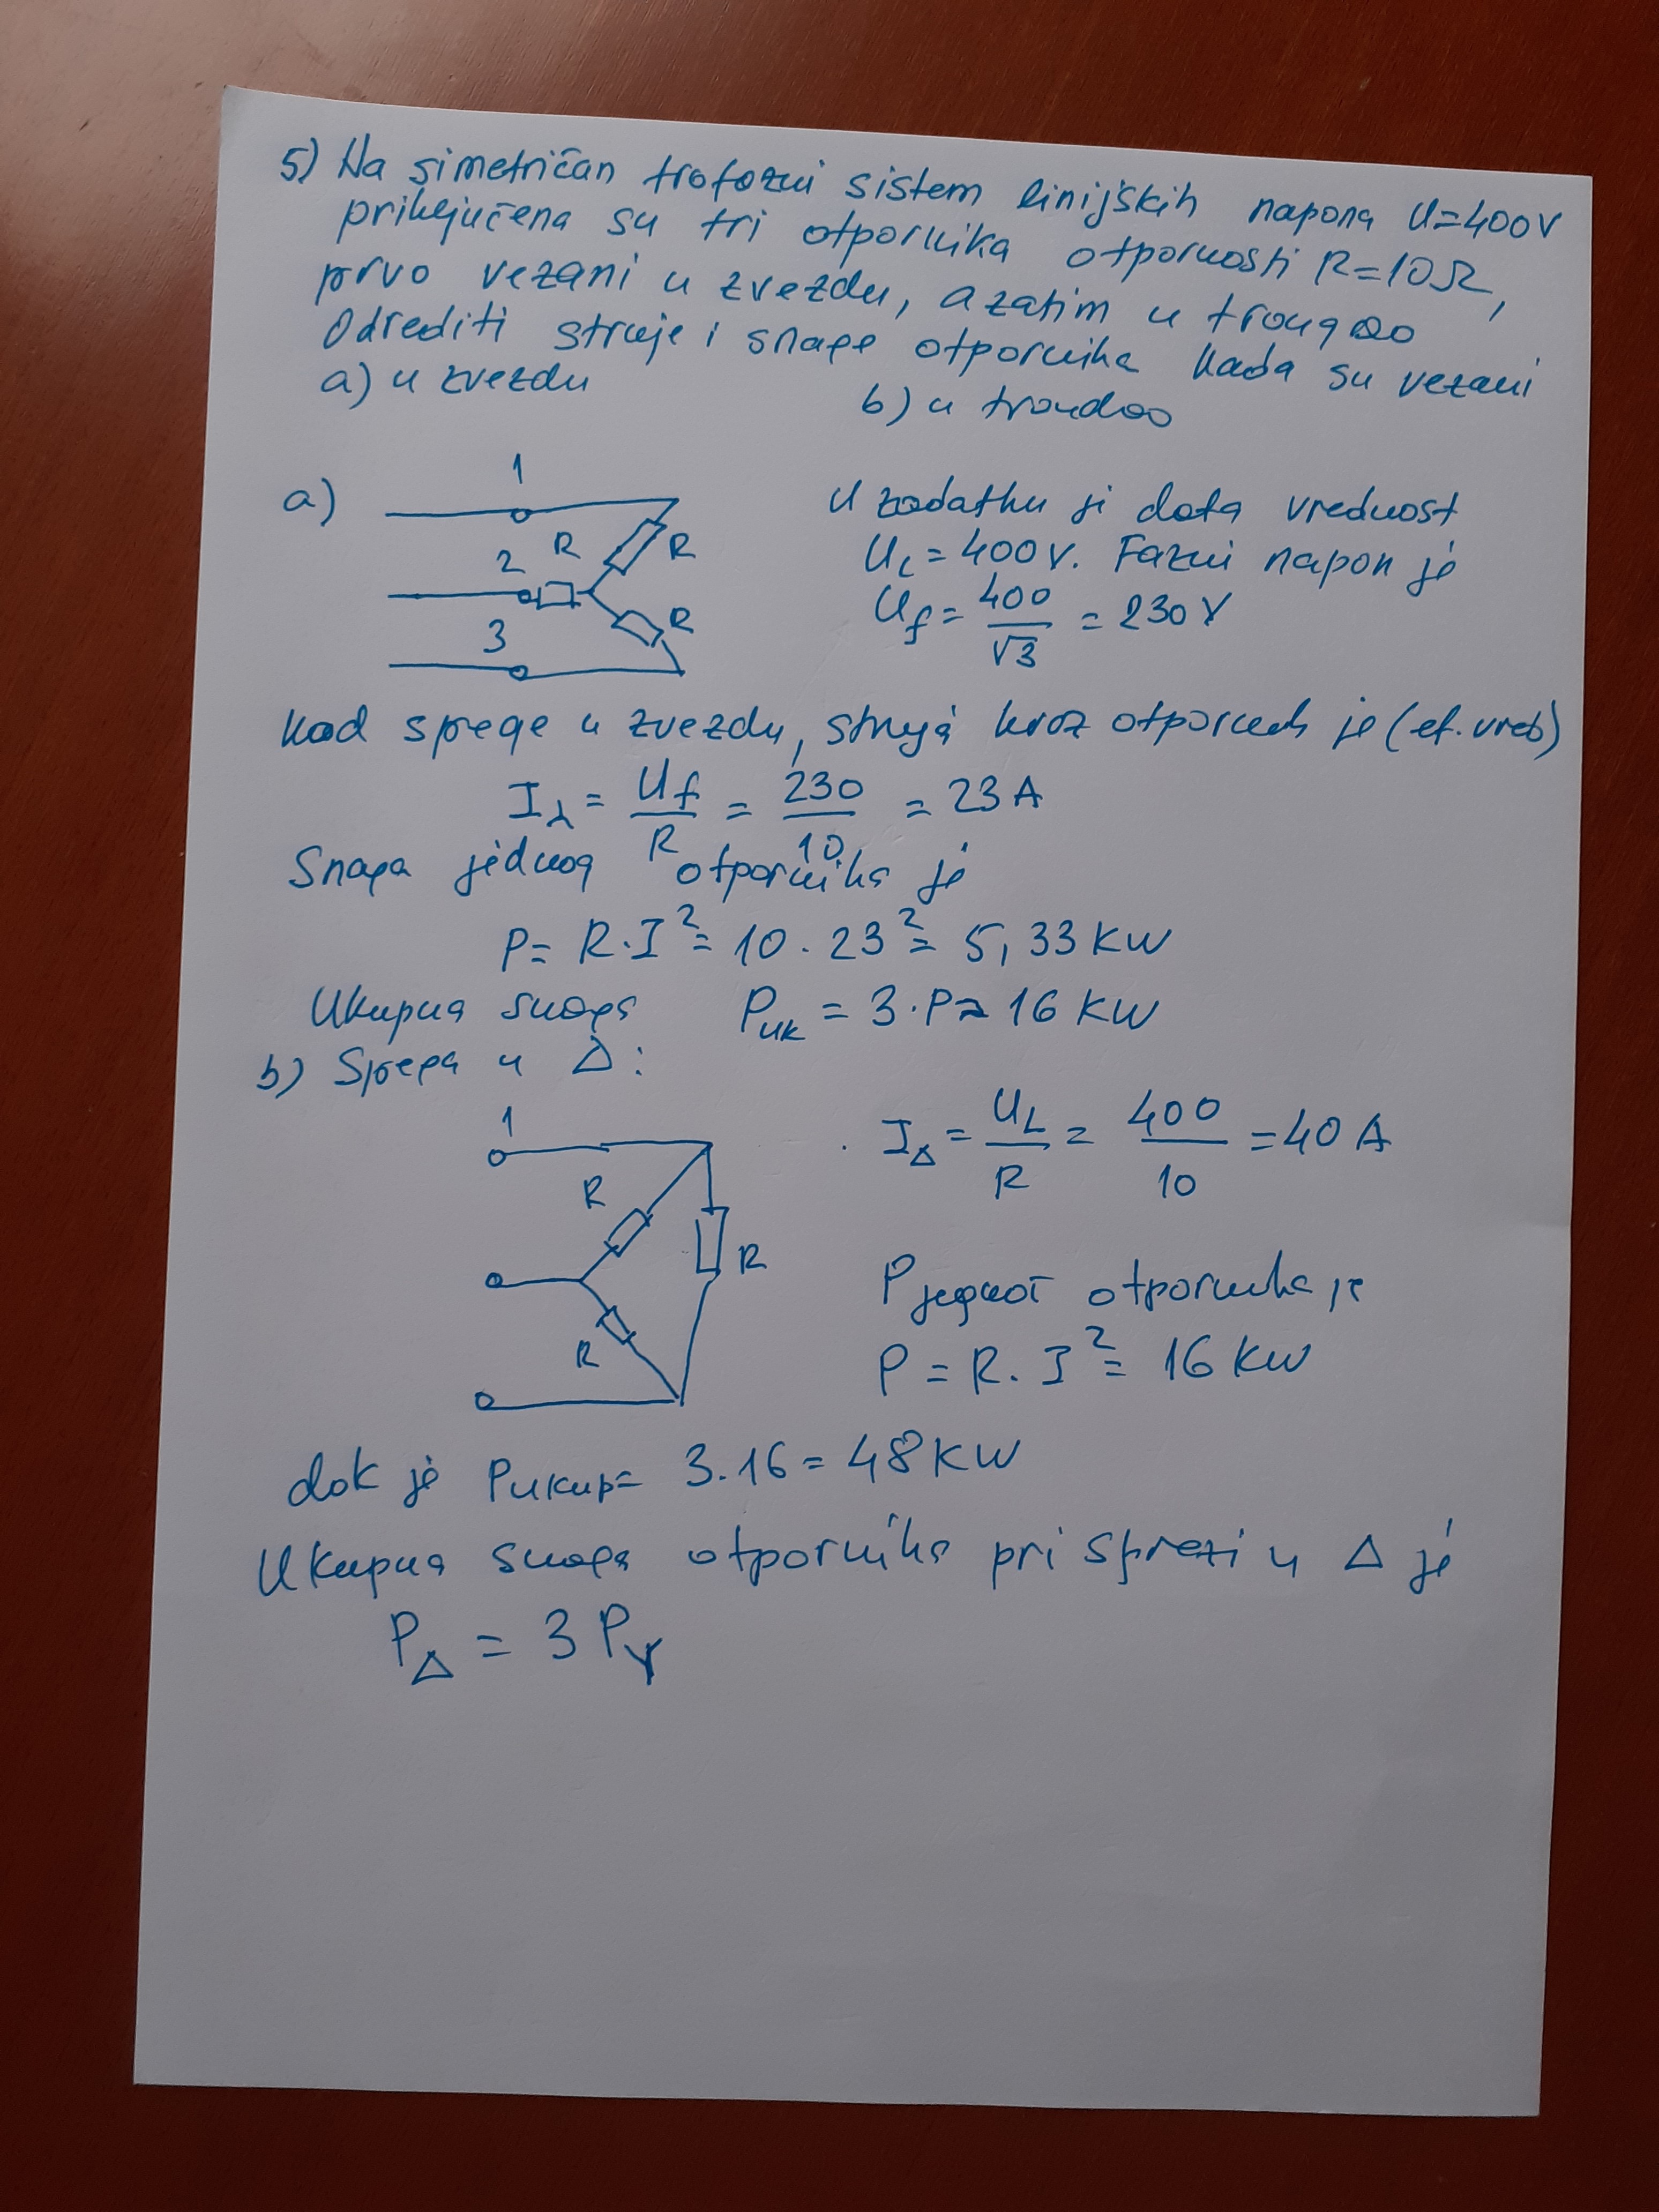 5) Na simetričan trofazni sistem linijskih napona U=400V
priključena su tri otpornika otpornosti R=10Ω,
prvo vezani u zvezdu, a zatim u trougao
Odrediti struje i snage otpornika kada su vezani
a) u zvezdu b) u trougao
a)
1
2 R R
3 R
U zadatku je data vrednost
UL = 400V. Fazni napon je
Uf = 400/√3 = 230 V
Kod sprege u zvezdu, struja kroz otpornik je (ef. vred)
Iλ = Uf/R = 230/10 = 23 A
Snaga jednog otpornika je
P = R·I² = 10·23² = 5,33 KW
Ukupna snaga Puk = 3·P≈16 KW
b) Sprega u Δ:
1
R
R
R
IΔ = UL/R = 400/10 = 40 A
P једног otpornika je
P = R·I² = 16 KW
dok je Pukup= 3·16 = 48 KW
Ukupna snaga otpornika pri sprezi u Δ je
PΔ = 3 PY